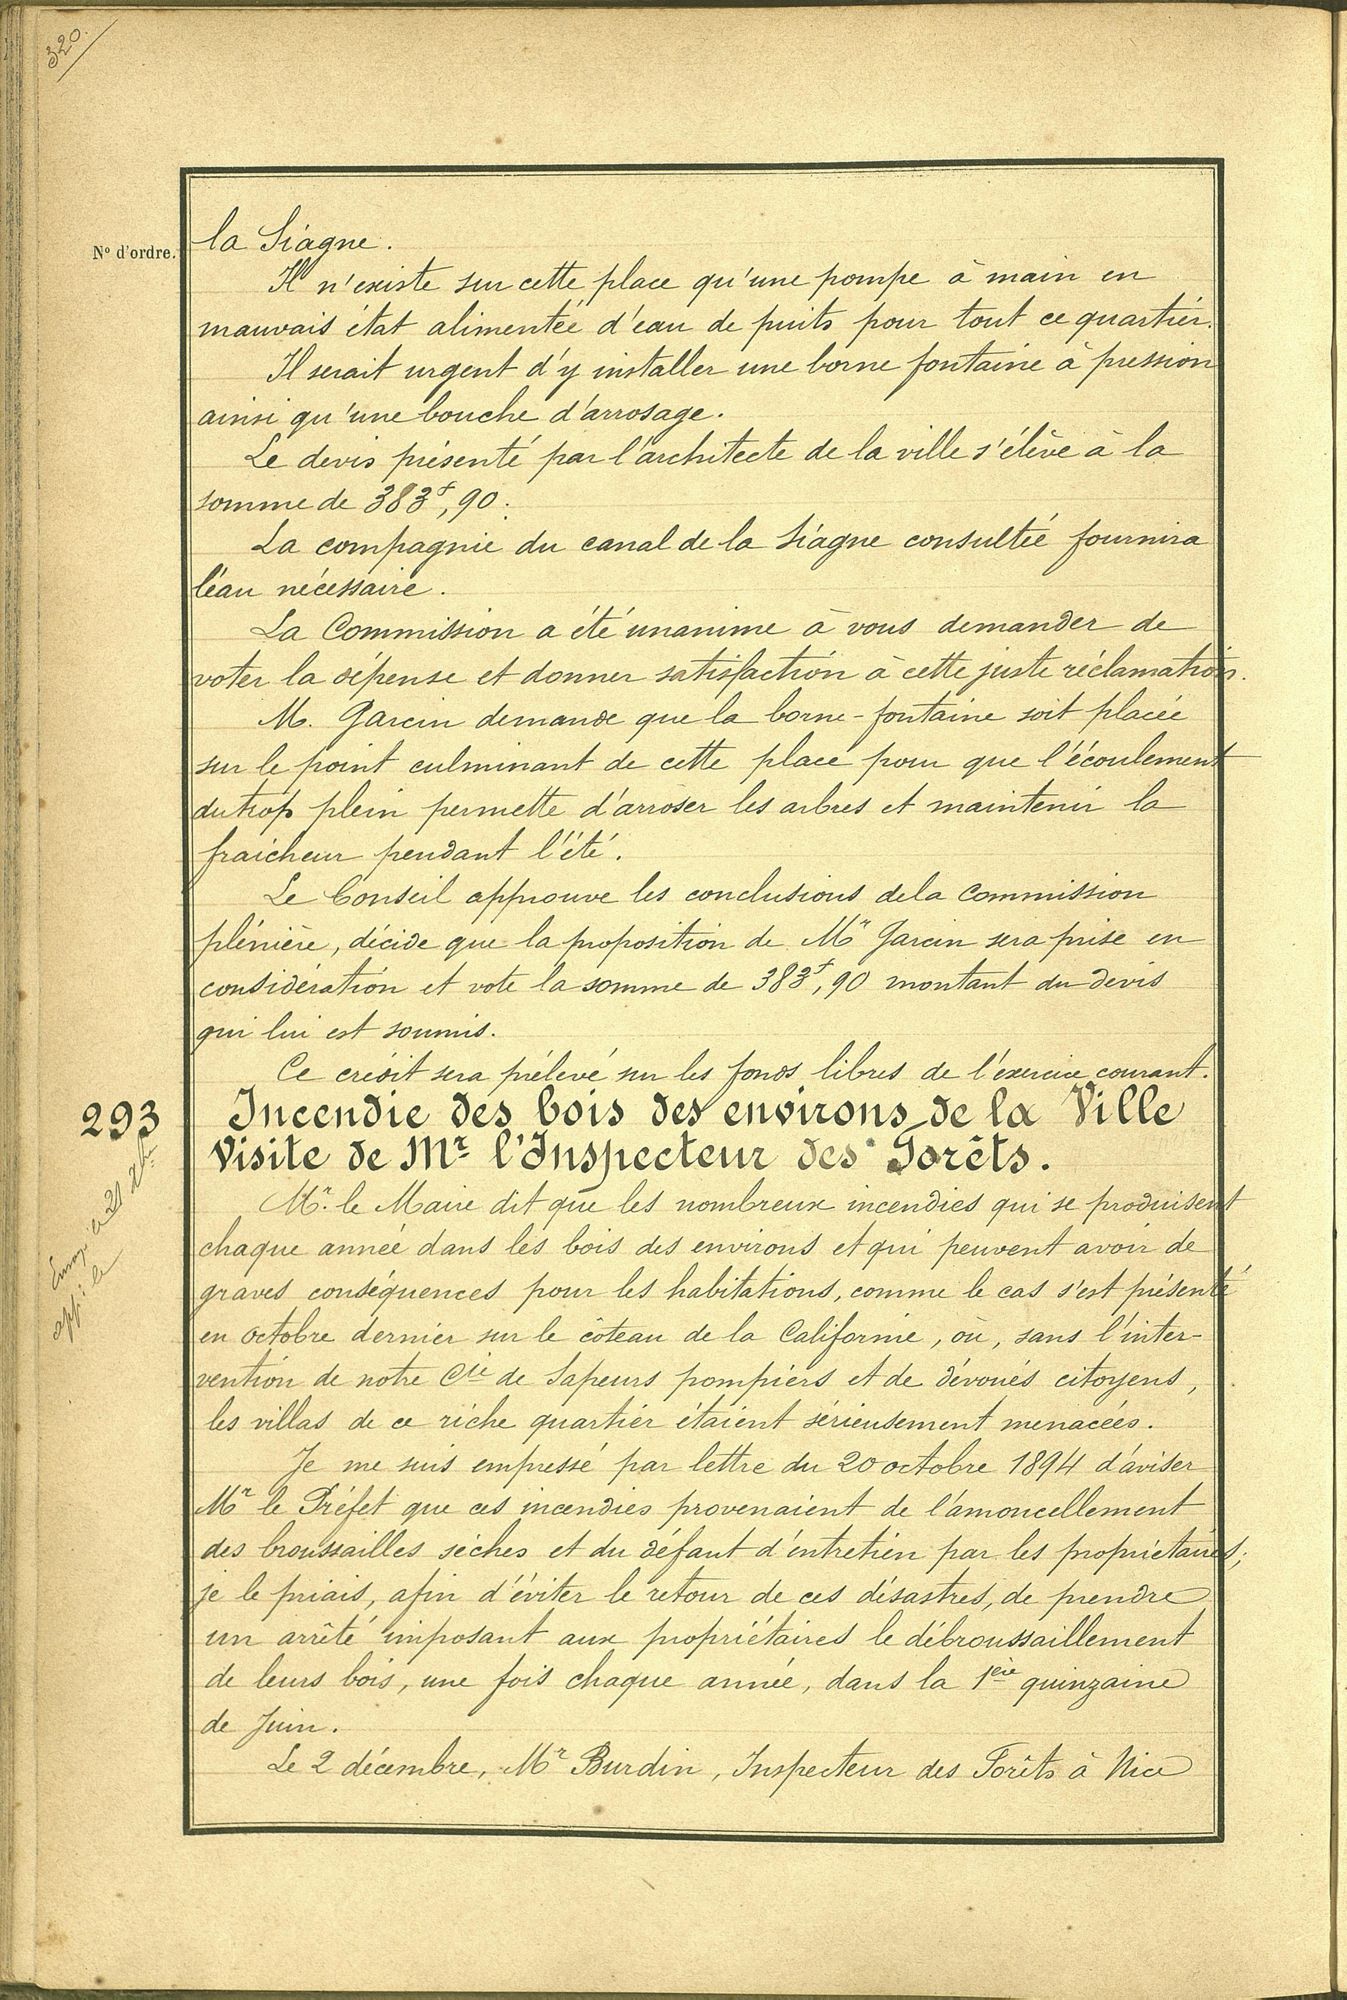 320.
N° d'ordre.
la Siagne.
Il n'existe sur cette place qu'une pompe à main en
mauvais état alimentée d'eau de puits pour tout ce quartier.
Il serait urgent d'y installer une borne fontaine à pression
ainsi qu'une bouche d'arrosage.
Le devis présenté par l'architecte de la ville s'élève à la
somme de 383f,90.
La compagnie du canal de la Siagne consultée fournira
l'eau nécessaire.
La Commission a été unanime à vous demander de
voter la dépense et donner satisfaction à cette juste réclamation.
M. Garcin demande que la borne-fontaine soit placée
sur le point culminant de cette place pour que l'écoulement
du trop plein permette d'arroser les arbres et maintenir la
fraicheur pendant l'été.
Le Conseil approuve les conclusions de la Commission
plénière, décide que la proposition de Mr Garcin sera prise en
considération et vote la somme de 383f,90 montant du devis
qui lui est soumis.
Ce crédit sera prélevé sur les fonds libres de l'exercice courant.
293 Incendie des bois des environs de la Ville
Visite de Mr l'Inspecteur des Forêts.
Envoyé le 21 Xbre
app: le
Mr. le Maire dit que les nombreux incendies qui se produisent
chaque année dans les bois des environs et qui peuvent avoir de
graves conséquences pour les habitations, comme le cas s'est présenté
en octobre dernier sur le côteau de la Californie, où, sans l'inter-
vention de notre Cie de Sapeurs pompiers et de dévoués citoyens,
les villas de ce riche quartier étaient sérieusement menacées.
Je me suis empressé par lettre du 20 octobre 1894 d'aviser
Mr le Préfet que ces incendies provenaient de l'amoncellement
des broussailles sèches et du défaut d'entretien par les propriétaires;
je le priais, afin d'éviter le retour de ces désastres, de prendre
un arrêté imposant aux propriétaires le débroussaillement
de leurs bois, une fois chaque année, dans la 1ère quinzaine
de Juin.
Le 2 décembre, Mr Burdin, Inspecteur des Forêts à Nice